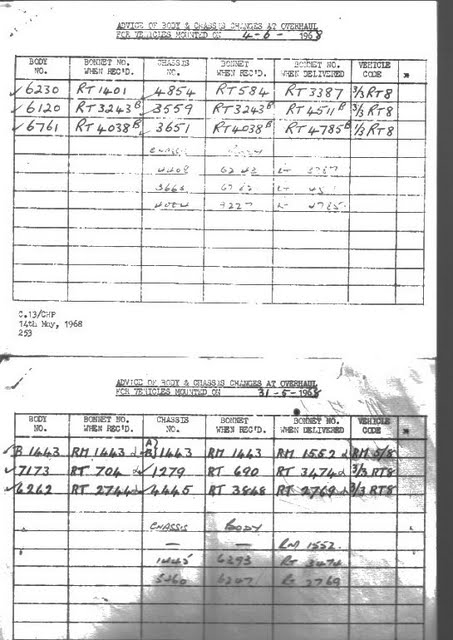 ADVICE OF BODY & CHASSIS CHANGES AT OVERHAUL
FOR VEHICLES MOUNTED ON 4-6- 1968
BODY NO. BONNET NO. WHEN REC'D. CHASSIS NO. BONNET WHEN REC'D. BONNET NO. WHEN DELIVERED VEHICLE CODE *
✓6230 RT1401 ✓4854 RT584 RT3387 3/3 RT8
✓6120 RT3243B ✓3559 RT3243B RT4511B 3/3 RT8
✓6761 RT4038B ✓3651 RT4038B RT4785B 1/3 RT8
C.13/CHP
14th May, 1968
253
ADVICE OF BODY & CHASSIS CHANGES AT OVERHAUL
FOR VEHICLES MOUNTED ON 31-5-1968
BODY NO. BONNET NO. WHEN REC'D. CHASSIS NO. BONNET WHEN REC'D. BONNET NO. WHEN DELIVERED VEHICLE CODE *
✓B 1443 RM 1443 1443 RM 1443 RM 1552 RM 5/8
✓7173 RT 704 ✓1279 RT 690 RT 3474 3/3 RT8
✓6262 RT 2744 ✓4445 RT 3848 RT 2769 3/3 RT8
CHASSIS BODY
— — RM 1552.
6293 RT 3474
RT 2769